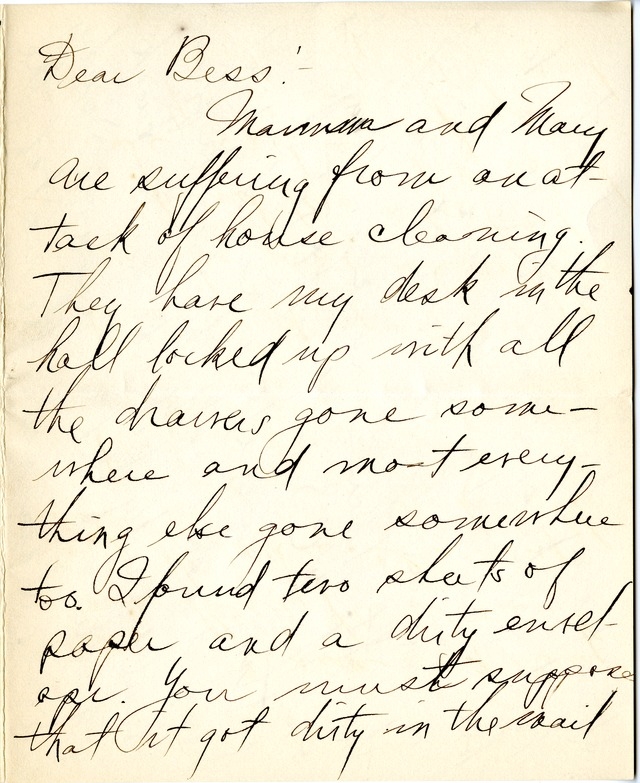 Dear Bess:-
Mamma and Mary
are suffering from an at-
tack of house cleaning.
They have my desk in the
hall locked up with all
the drawers gone some-
where and most every-
thing else gone somewhere
too. I found two sheets of
paper and a dirty envel-
ope. You must suppose
that it got dirty in the mail